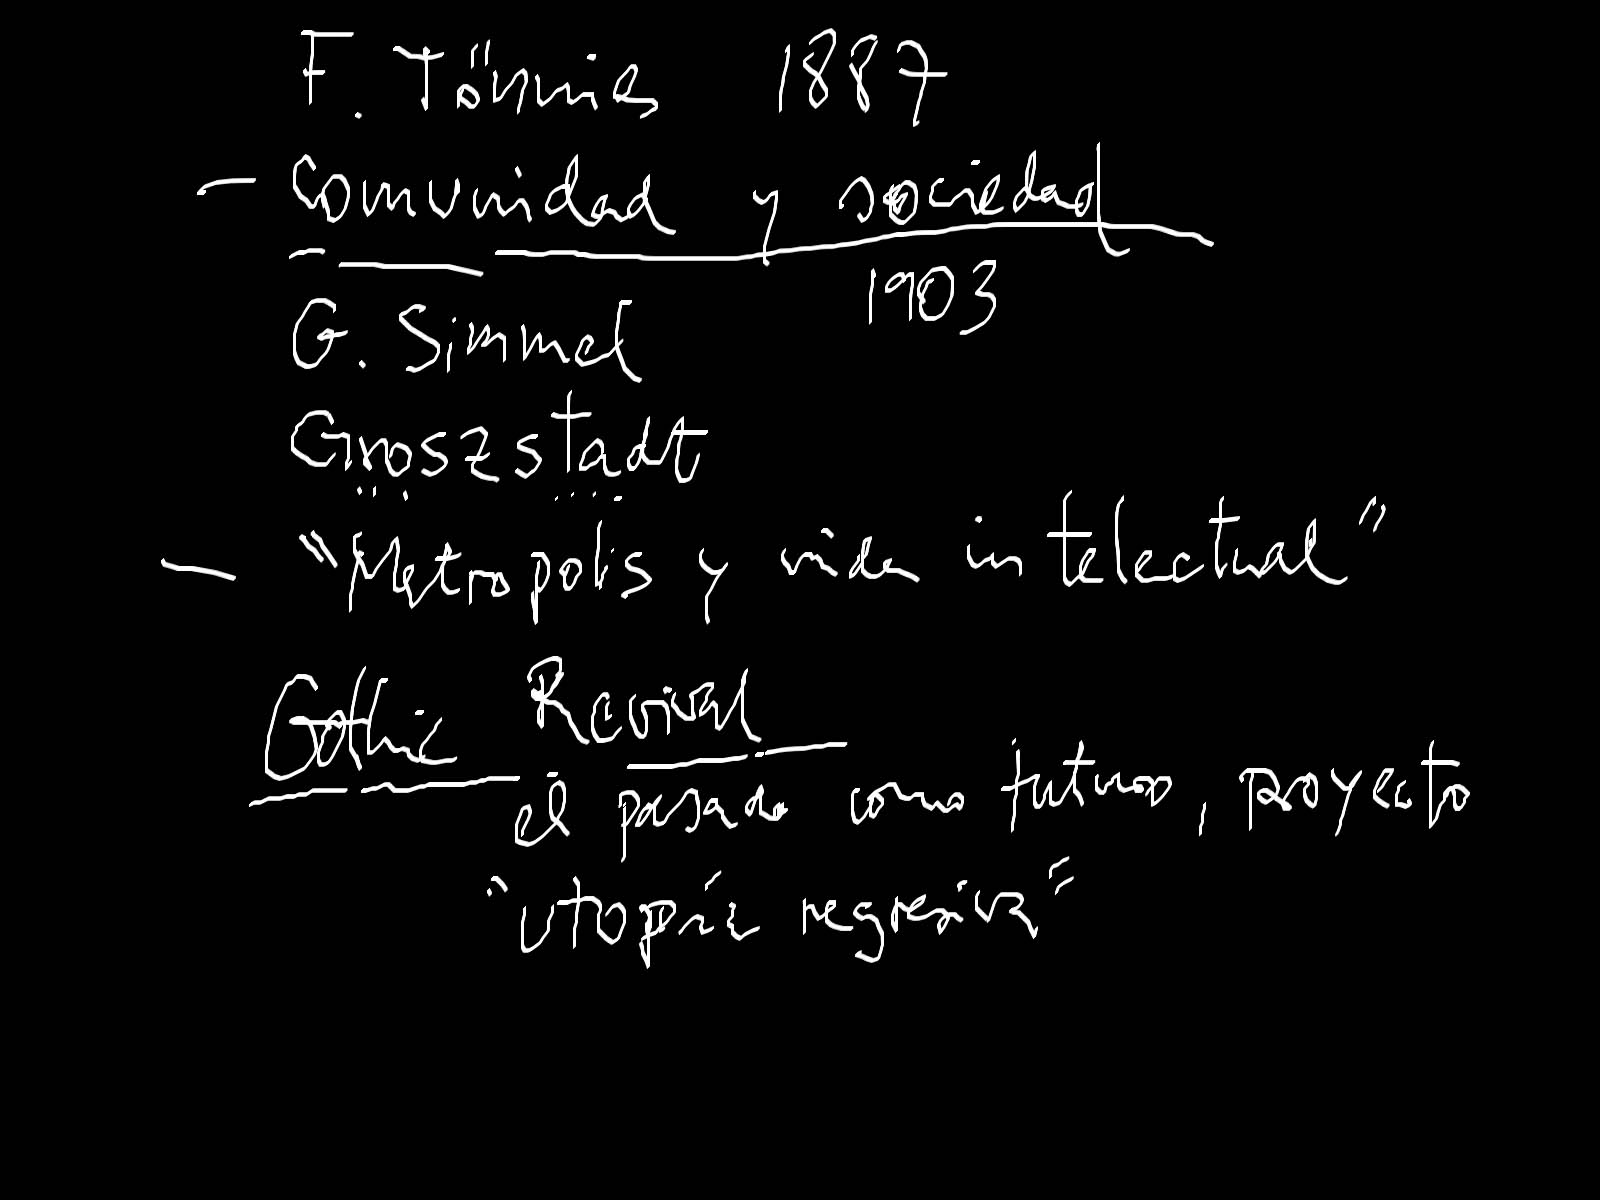 F. Tönnies 1887
— Comunidad y sociedad
1903
G. Simmel
Groszstadt
— "Metropolis y vida intelectual"
Gothic Revival
el pasado como futuro, proyecto
"utopía regresiva"